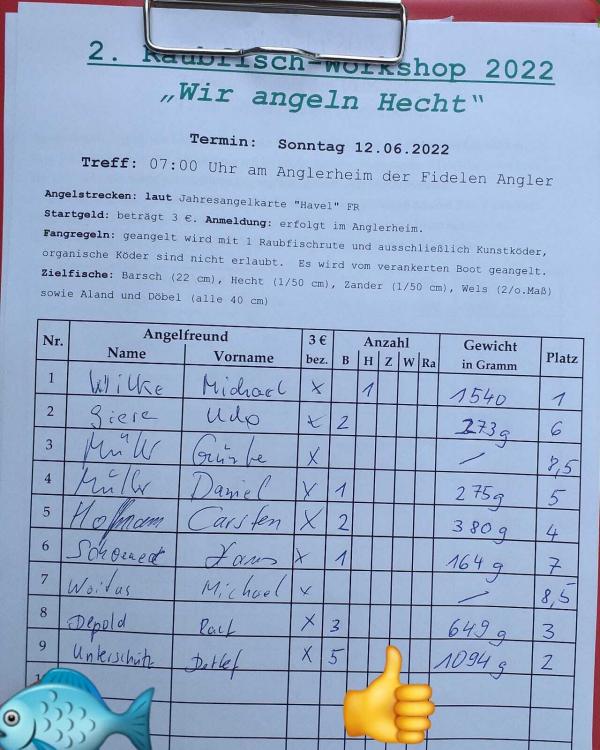 2. Raubfisch-Workshop 2022
„Wir angeln Hecht“
Termin: Sonntag 12.06.2022
Treff: 07:00 Uhr am Anglerheim der Fidelen Angler
Angelstrecken: laut Jahresangelkarte "Havel" FR
Startgeld: beträgt 3 €. Anmeldung: erfolgt im Anglerheim.
Fangregeln: geangelt wird mit 1 Raubfischrute und ausschließlich Kunstköder,
organische Köder sind nicht erlaubt. Es wird vom verankerten Boot geangelt.
Zielfische: Barsch (22 cm), Hecht (1/50 cm), Zander (1/50 cm), Wels (2/o.Maß)
sowie Aland und Döbel (alle 40 cm)
Nr. Angelfreund 3 € Anzahl Gewicht Platz
Name Vorname bez. B H Z W Ra in Gramm
1 Wilke Michael X 1 1540 1
2 Giese Udo X 2 273g 6
3 Müller X / 8,5
4 Müller Daniel X 1 275g 5
5 Hoffmann Carsten X 2 380g 4
6 X 1 164g 7
7 Woitas Michael X / 8,5
8 Depold Ralf X 3 649g 3
9 Unterschütz Detlef X 5 1094g 2